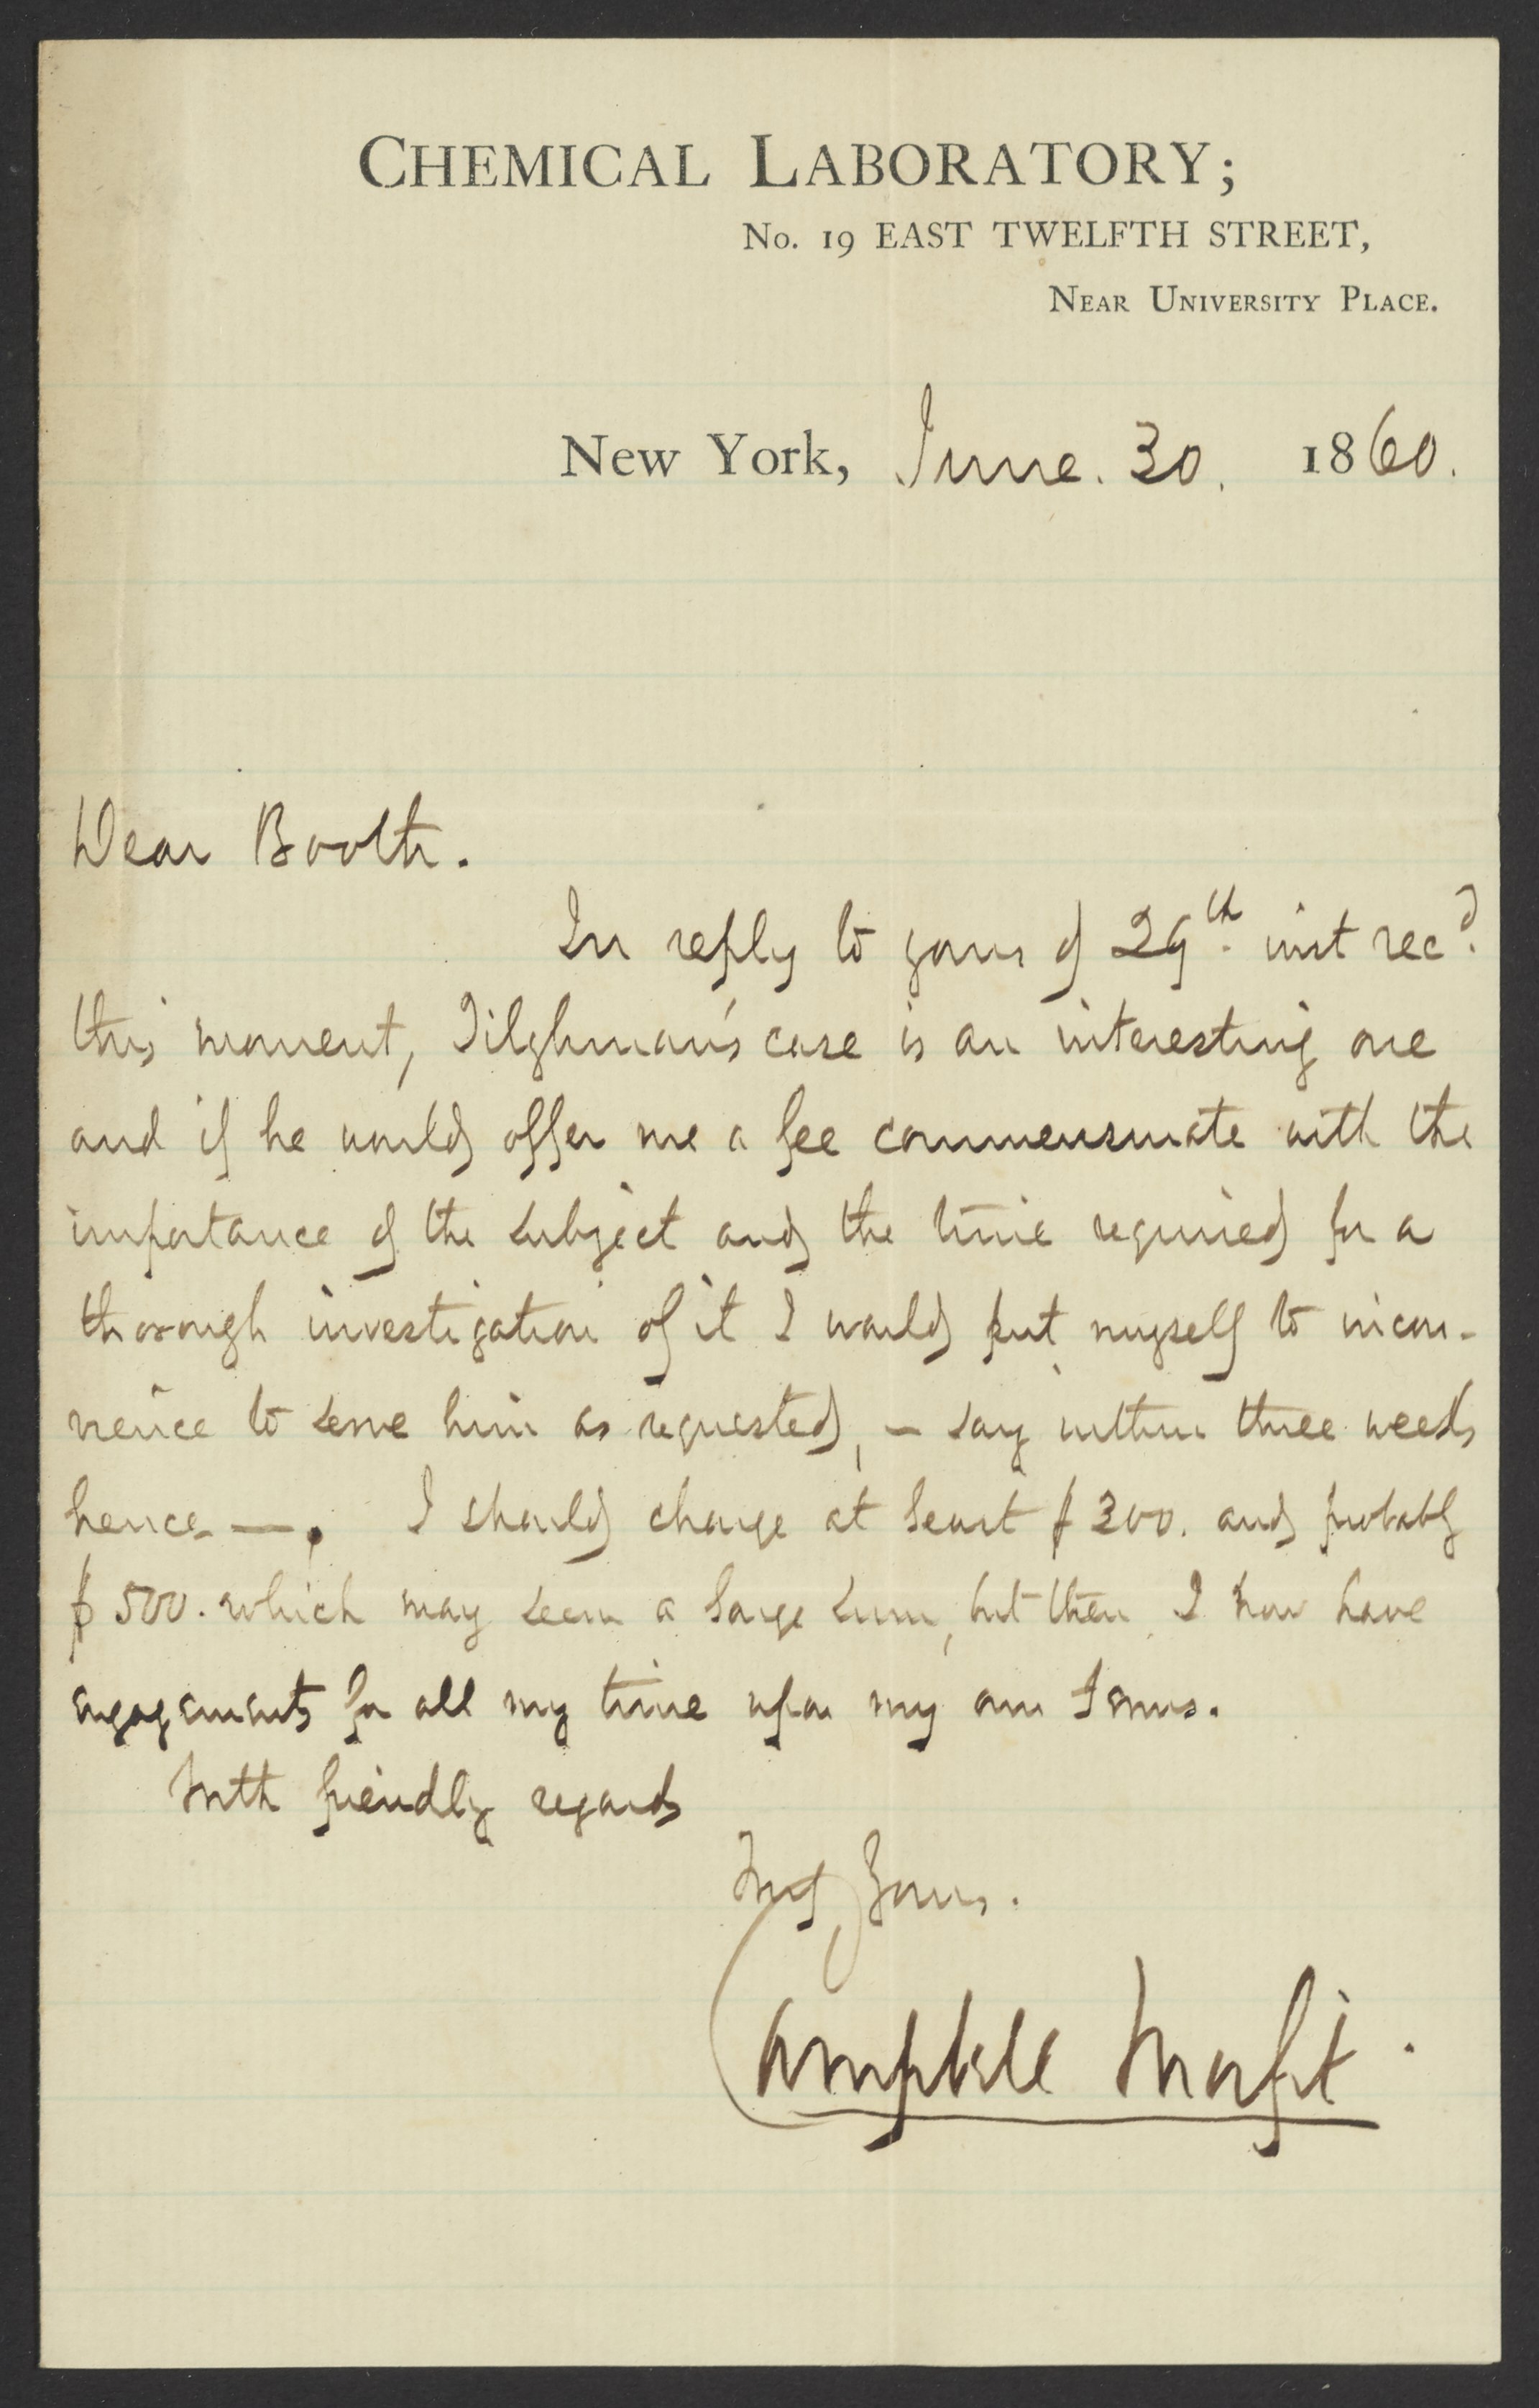 CHEMICAL LABORATORY;
No. 19 EAST TWELFTH STREET,
NEAR UNIVERSITY PLACE.
New York, June. 30. 1860.
Dear Booth.
In reply to yours of 29th. inst recd.
this moment, Tilghman's case is an interesting one
and if he would offer me a fee commensurate with the
importance of the subject and the time required for a
thorough investigation of it I would put myself to incon-
nience to serve him as requested, — say within three weeks
hence —. I should charge at least $300. and probably
$500. which may seem a large sum, but then, I now have
engagements for all my time upon my own terms.
With friendly regards
Truly Yours.
Campbell Morfit.